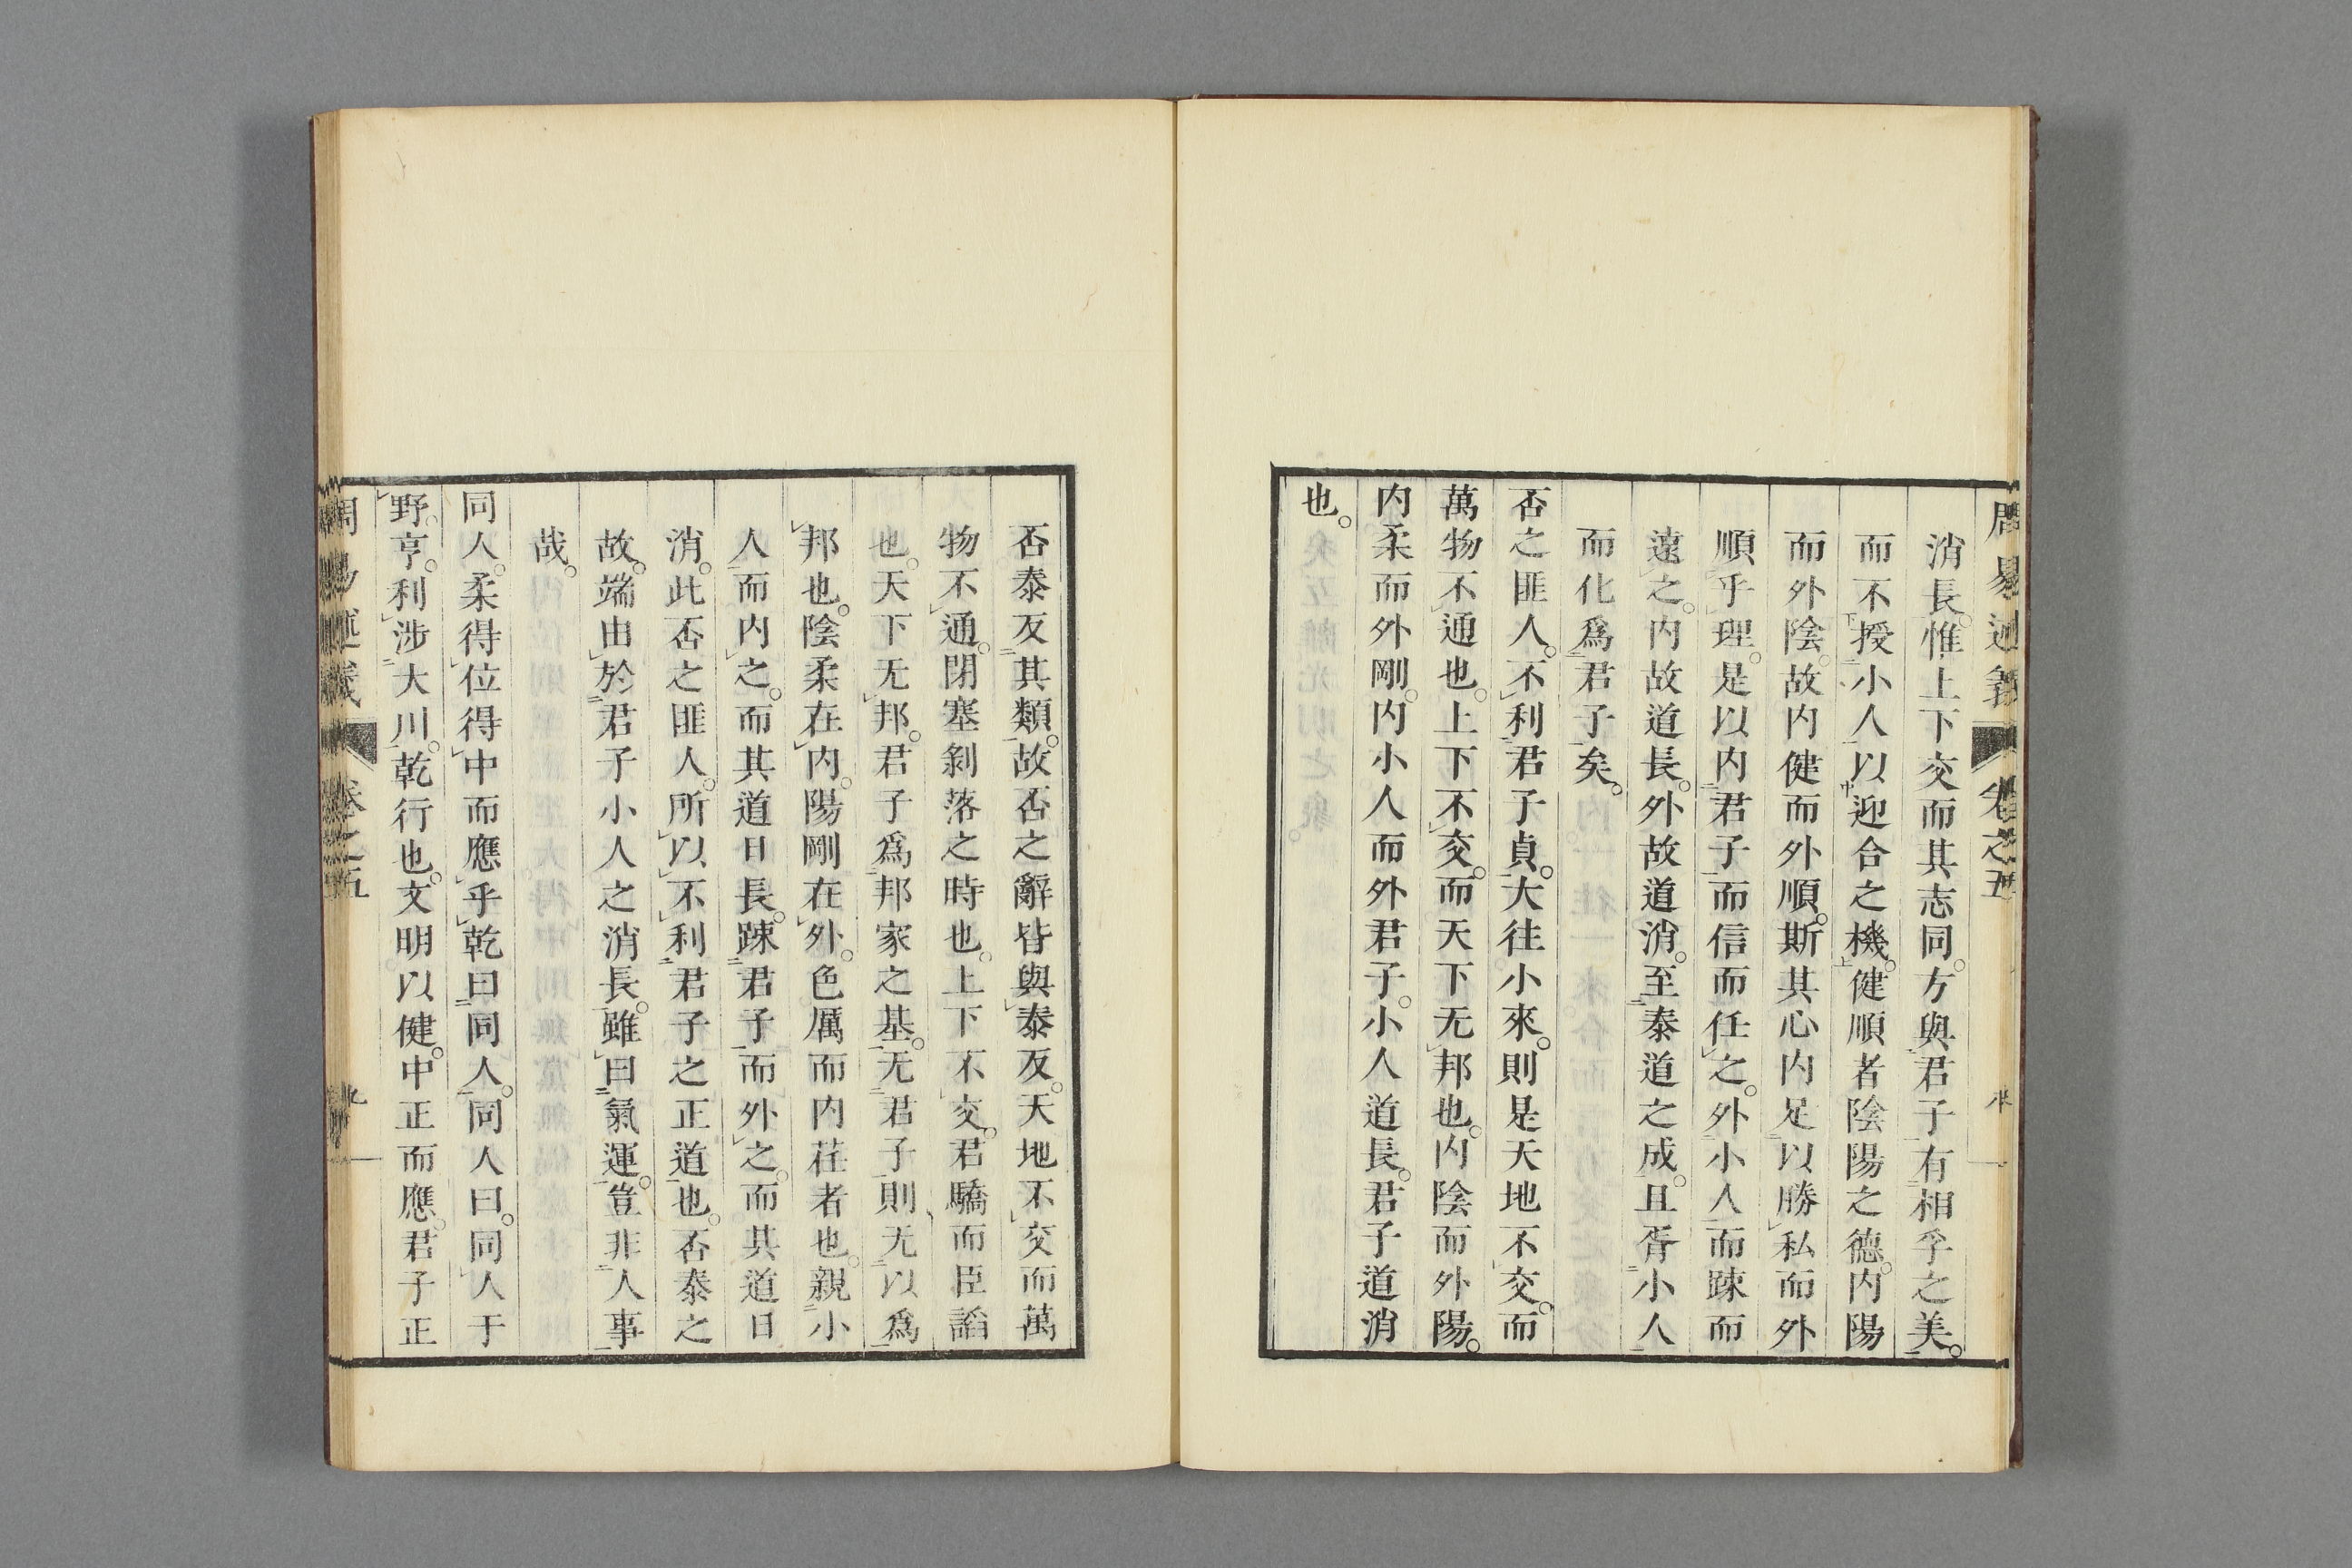 消長。惟上下交而其志同。方與君子有相孚之美。
而不授小人以迎合之機。健順者陰陽之德。内陽
而外陰。故内健而外順。斯其心内足以勝私而外
順乎理。是以内君子而信而任之。外小人而踈而
遠之。内故道長。外故道消。至泰道之成。且胥小人
而化爲君子矣。
否之匪人。不利君子貞。大往小來。則是天地不交。而
萬物不通也。上下不交。而天下无邦也。内陰而外陽。
内柔而外剛。内小人而外君子。小人道長。君子道消
也。
否泰反其類。故否之辭皆與泰反。天地不交而萬
物不通。閉塞剝落之時也。上下不交。君驕而臣謟
也。天下无邦。君子爲邦家之基。无君子則无以爲
邦也。陰柔在内。陽剛在外。色厲而内荏者也。親小
人而内之。而其道日長。踈君子而外之。而其道日
消。此否之匪人。所以不利君子之正道也。否泰之
故。端由於君子小人之消長。雖曰氣運。豈非人事
哉。
同人。柔得位得中而應乎乾曰同人。同人曰。同人于
野。亨。利涉大川。乾行也。文明以健。中正而應。君子正
周易述義
卷之五
九